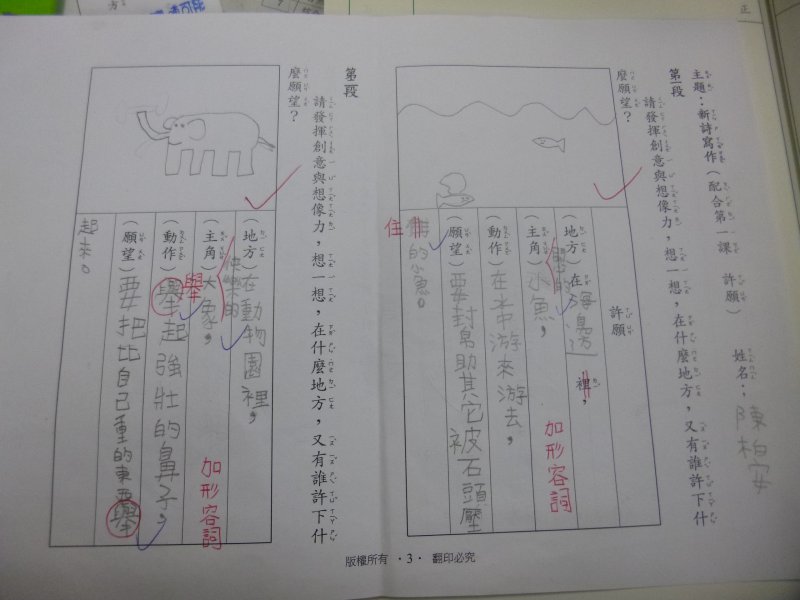 主題：新詩寫作（配合第一課 許願） 姓名：陳柏安
第一段
請發揮創意與想像力，想一想，在什麼地方，又有誰許下什
麼願望？
許願
（地方）在海邊裡，
（主角）小魚，
加形容詞
（動作）在水中游來游去，
（願望）要封幫助其它被石頭壓
住
的小魚。
第二段
請發揮創意與想像力，想一想，在什麼地方，又有誰許下什
麼願望？
（地方）在動物園裡，
快樂的
（主角）大象，
加形容詞
舉
（動作）舉起強壯的鼻子，
（願望）要把比自己重的東西舉
起來。
版權所有 ‧3‧ 翻印必究